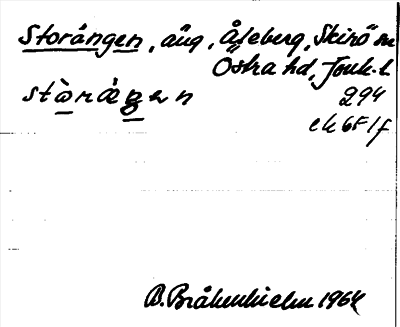 Storängen, äng, Åseberg, Skirö sn
Östra hd, Jönk. l
stòräŋen 294
ek 6F1f
B. Bråkenhielm 1964